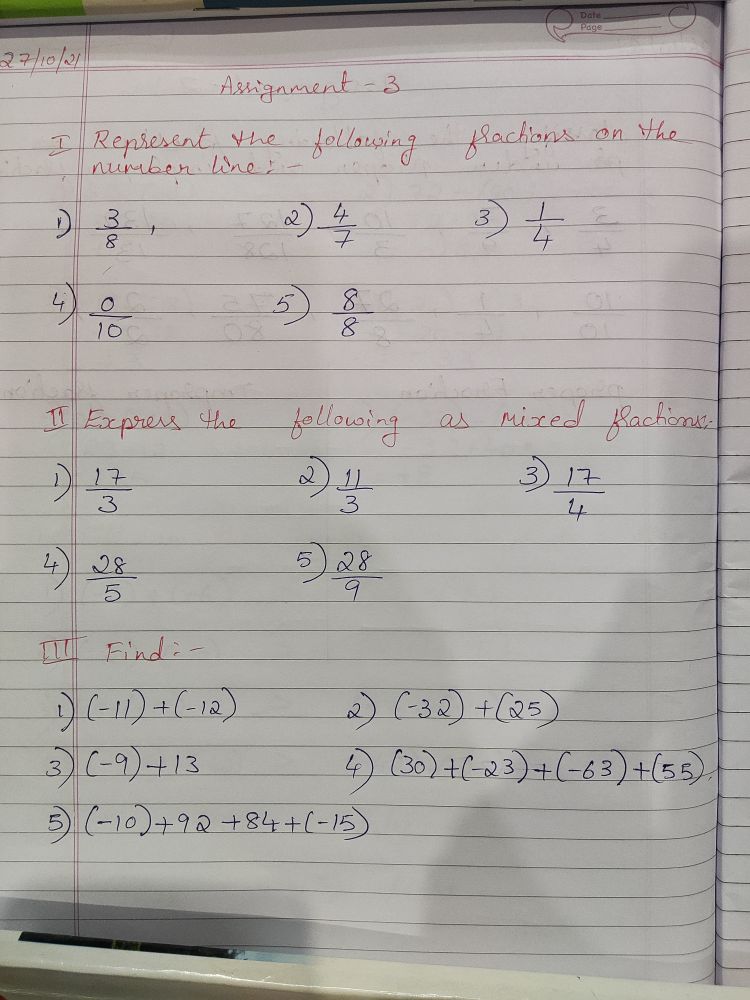 Date
Page
27/10/21
Assignment - 3
I Represent the following fractions on the
number line:-
1) 3/8, 2) 4/7 3) 1/4
4) 0/10 5) 8/8
II Express the following as mixed fractions:-
1) 17/3 2) 11/3 3) 17/4
4) 28/5 5) 28/9
III Find:-
1) (-11)+(-12) 2) (-32)+(25)
3) (-9)+13 4) (30)+(-23)+(-63)+(55).
5) (-10)+92+84+(-15)